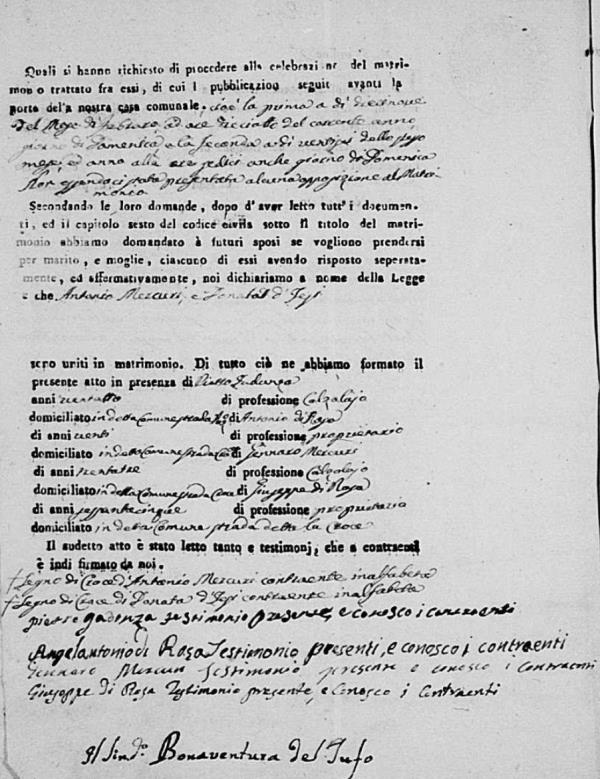 Quali si hanno richiesto di procedere alla celebrazi ne del matri-
mon o trattato fra essi, di cui l pubblicazion seguit avanti la
porta del'a nostra casa comunale. cioè la prima a di diecinove
del Mese di Febraro, ad ore dieciotto del corrente anno
giorno di Domenica e la seconda a di ventisei dello stesso
mese, ed anno alla ore sedici anche giorno di Domenica
Non essendoci stata presentata alcuna opposizione al Matri
monio
Secondando le loro domande, dopo d'aver letto tutt'i documen-
ti, ed il capitolo sesto del codice civila sotto il titolo del matri-
monio abbiamo domandato à futuri sposi se vogliono prendersi
per marito, e moglie, ciascuno di essi avendo risposto seperata-
mente, ed affermativamente, noi dichiariamo a nome della Legge
e che Antonio Mercuri, e Donata d'Jesi
sono uniti in matrimonio. Di tutto ciò ne abbiamo formato il
presente atto in presenza di Pietro
anni ventotto di professione Calzolajo
domiciliato in detta Comune strada di Antonio di Rosa
di anni venti di professione proprietario
domiciliato in detta Comune strada di Gennaro Mercuri
di anni trentatre di professione Calzolajo
domiciliato in detta Comune strada Croce di Giuseppe di Rosa
di anni sessantacinque di professione proprietario
domiciliato in detta Comune strada detta la Croce
Il sudetto atto è stato letto tanto e testimonj, che a contraenti
è indi firmato da noi.
† Segno di Croce d'Antonio Mercuri contraente inalfabeta
† Segno di Croce di Donata d'Jesi contraente inalfabeta
pietro gadenza testimonio presente, e conosco i contraenti
Angelantonio di Rosa Testimonio presenti, e conosco i contraenti
Gennaro Mercuri testimonio presente e conosco i contraenti
Giuseppe di Rosa Testimonio presente, e Conosco i Contraenti
Il Sind.º Bonaventura del Tufo